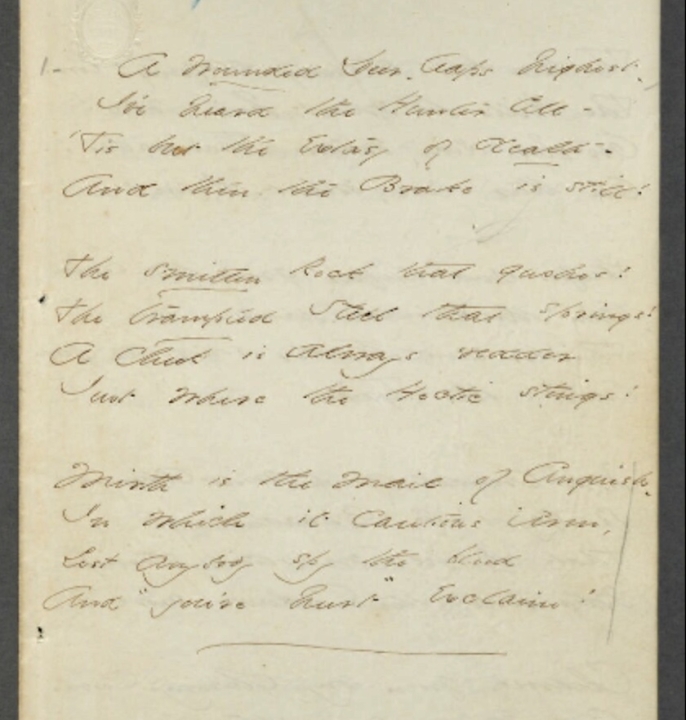 1- A Wounded Deer leaps highest -
I've heard the Hunter tell -
'Tis but the Extasy of death -
And then the Brake is still!
The smitten Rock that gushes!
The trampled Steel that springs!
A Cheek is always redder
Just where the Hectic stings!
Mirth is the mail of Anguish -
In which it Cautious Arm,
Lest Anybody spy the blood
And "you're hurt" Exclaim!